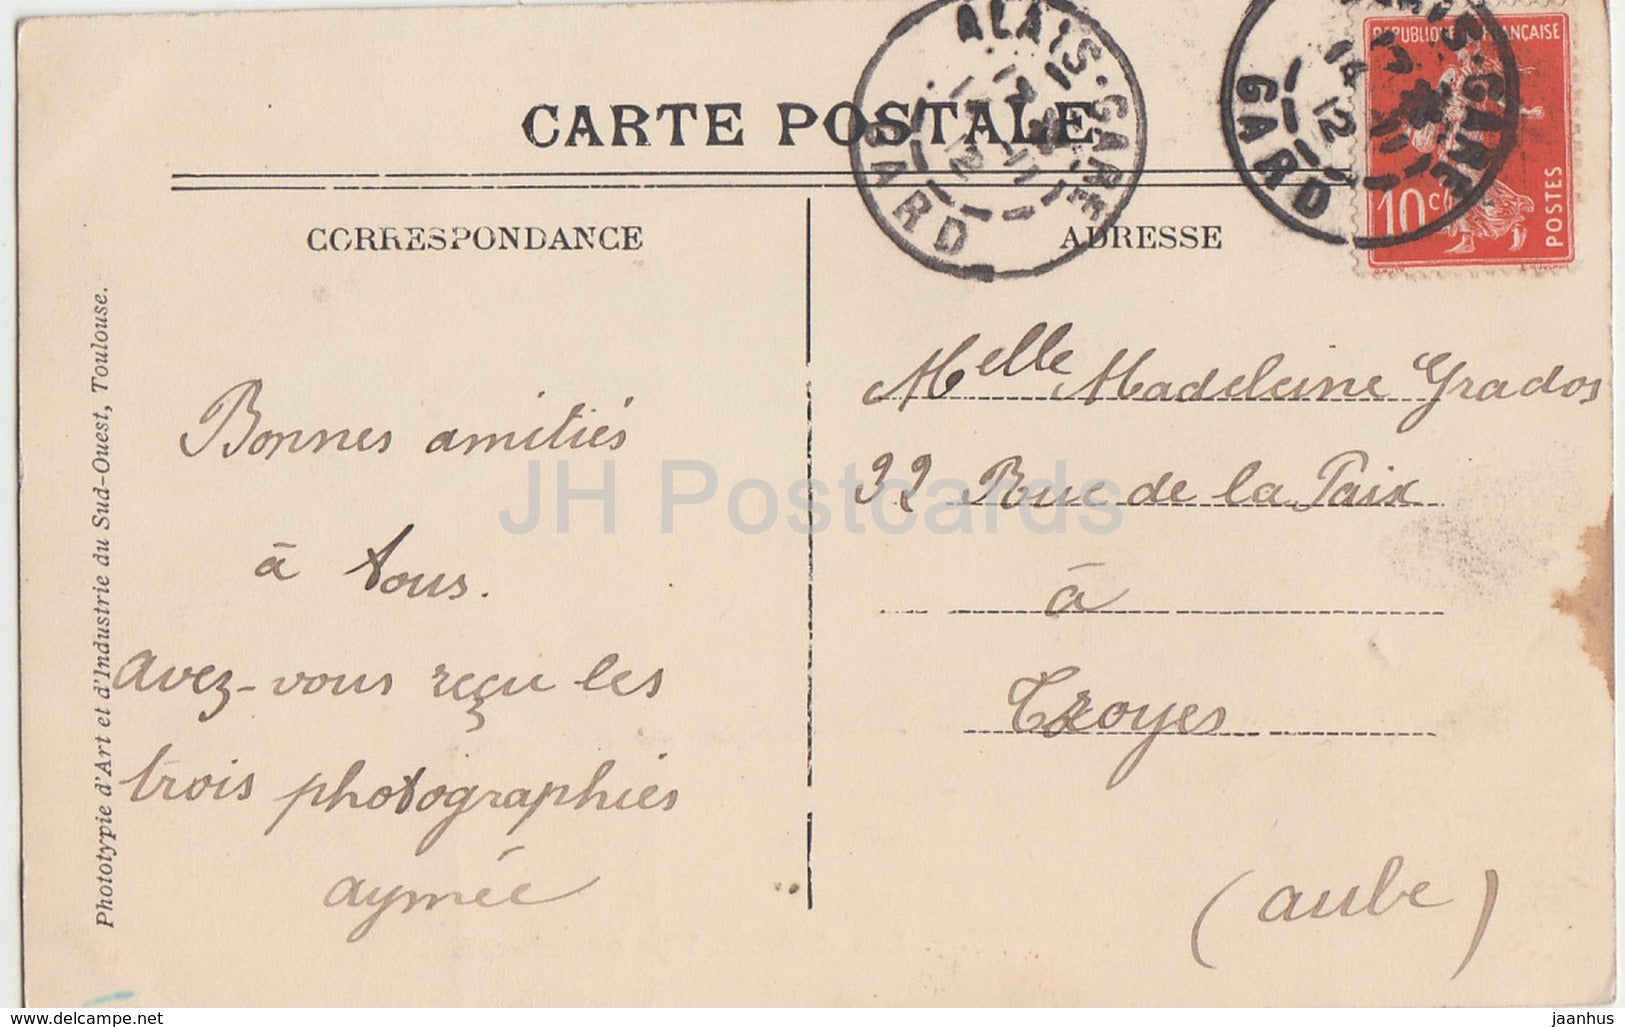 CARTE POSTALE
ALAIS-GARE
GARD
14
12
RÉPUBLIQUE FRANÇAISE
10 c
POSTES
CORRESPONDANCE
ADRESSE
Phototypie d'Art et d'Industrie du Sud-Ouest, Toulouse.
Bonnes amitiés
à tous.
avez-vous reçu les
trois photographies
aymée
Melle Madeleine Grados
32 Rue de la Paix
à
Troyes
(aube)
JH Postcards
www.delcampe.net
jaanhus